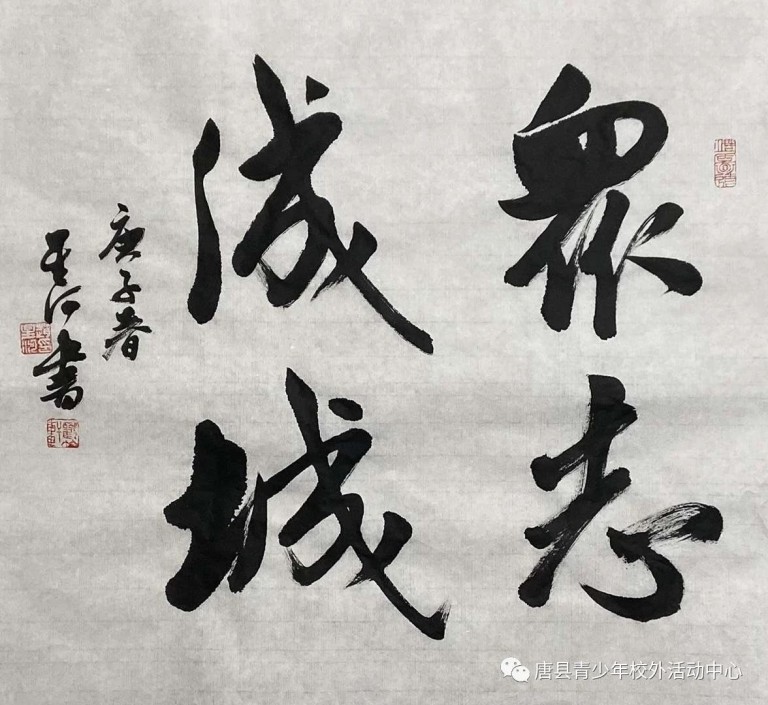 眾志
成城
庚子春
星河書
唐县青少年校外活动中心